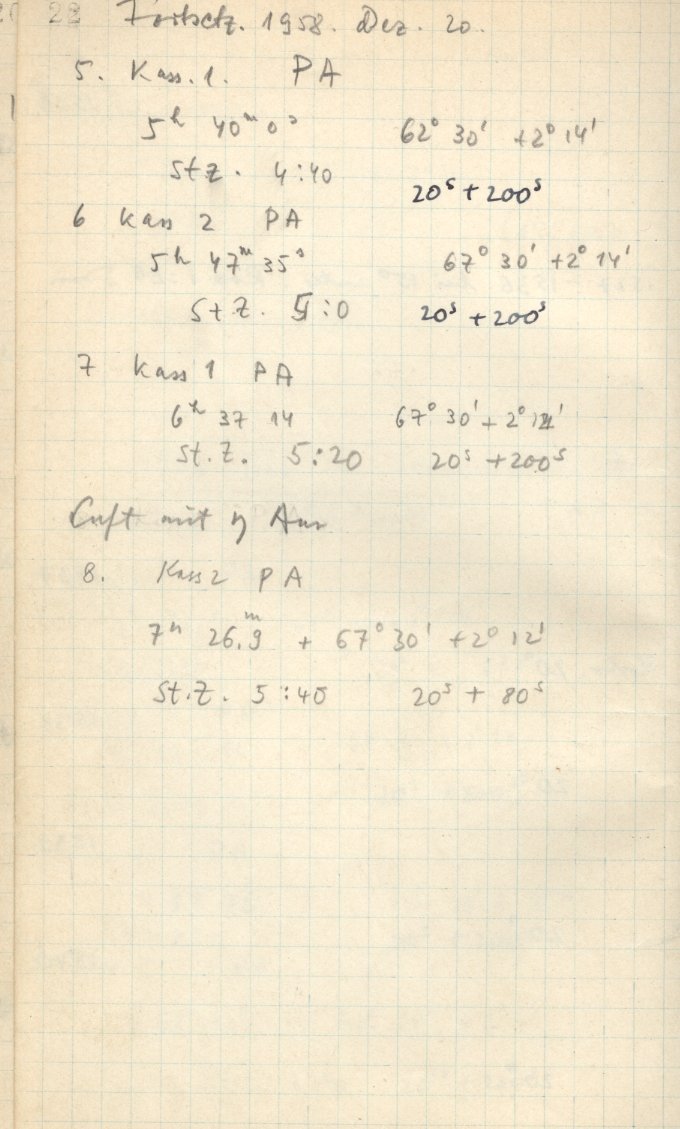 22 Fortsetz. 1958. Dez. 20.
5. Kass. 1. PA
5h 40m 0s 62° 30' +2° 14'
St.z. 4:40 20s + 200s
6 Kass 2 PA
5h 47m 35s 67° 30' +2° 14'
St Z. 5:0 20s + 200s
7 Kass 1 PA
6h 37 14 67° 30' + 2° 12'
St. Z. 5:20 20s + 200s
Luft mit η Aur
8. Kass 2 PA
7h 26.9m + 67° 30' +2° 12'
St.Z. 5:40 20s + 80s